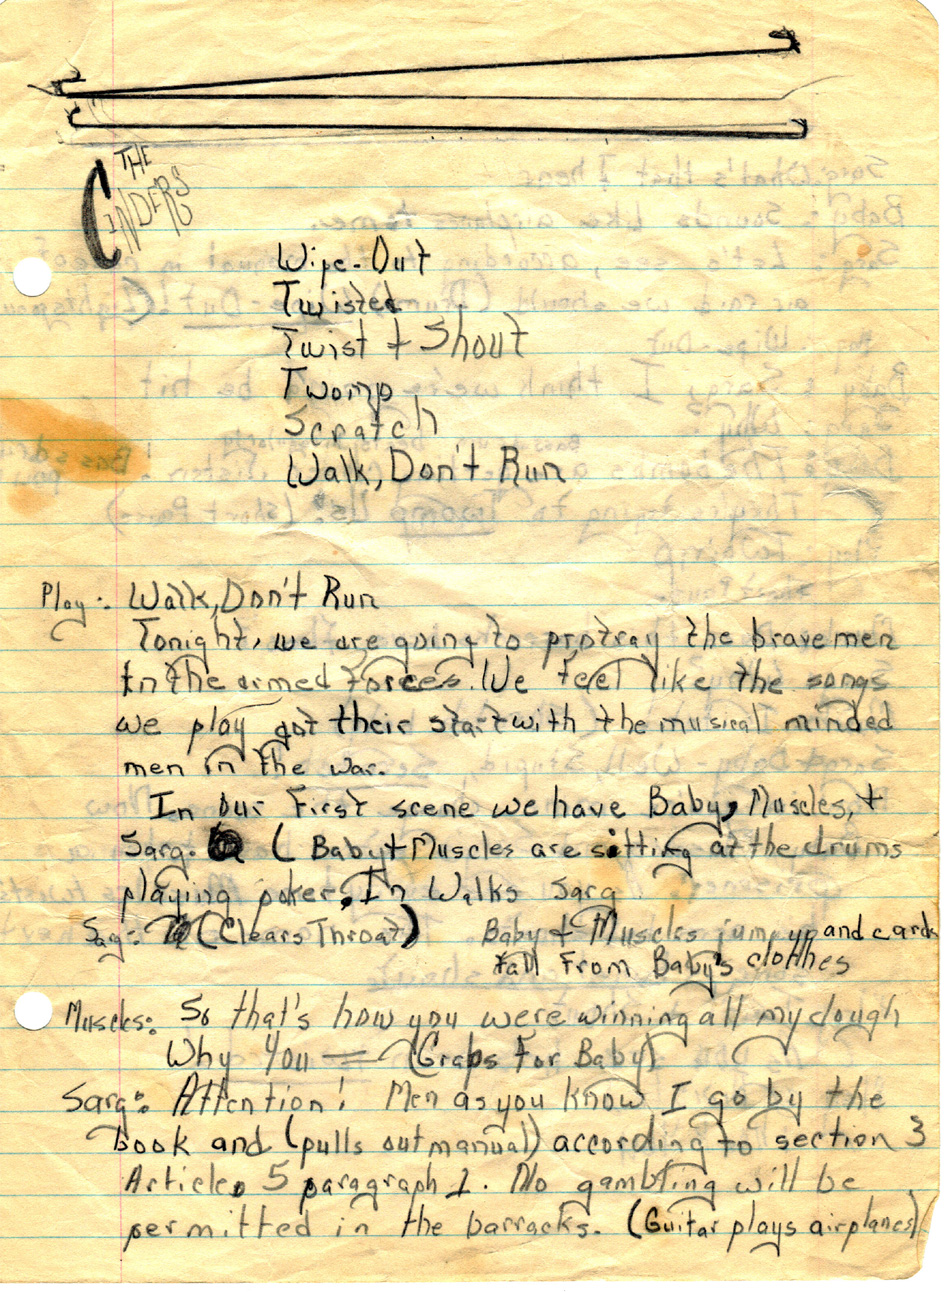 THE
CINDERS
Wipe-Out
Twisted
Twist + Shout
Twomp
Scratch
Walk, Don't Run
Play: Walk, Don't Run
Tonight, we are going to protray the brave men
in the armed forces. We feel like the songs
we play got their start with the musical minded
men in the war.
In our first scene we have Baby, Muscles, +
Sarg. ( Baby + Muscles are sitting at the drums
playing poker. In Walks Sarg
Sag: (Clears Throat) Baby + Muscles jump up and cards
fall from Baby's clothes
Muscles: So that's how you were winning all my dough
Why You = (Grabs for Baby)
Sarg: Attention! Men as you know I go by the
book and (pulls out manual) according to section 3
Article 5 paragraph 1. No gambling will be
permitted in the barracks. (Guitar plays airplanes)